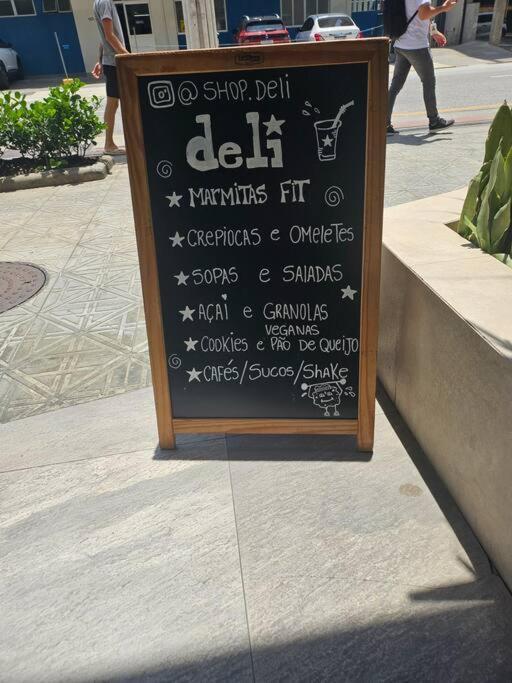 @SHOP.Deli
deli
MARMITAS FIT
CREPIOCAS e OMELETES
SOPAS e SALADAS
AÇAI e GRANOLAS
VEGANAS
COOKIES e PÃO DE QUEIJO
CAFÉS/SUCOS/SHAKE